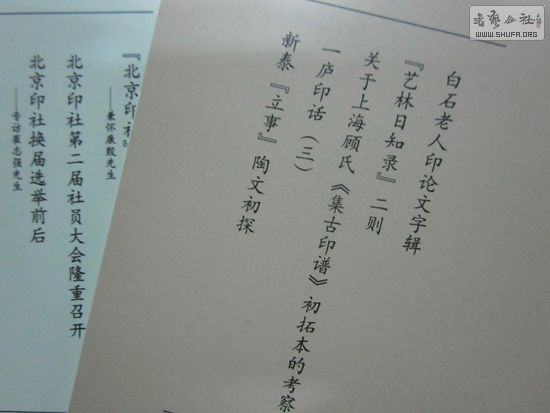 白石老人印论文字辑
『艺林日知录』二则
关于上海顾氏《集古印谱》初拓本的考察
一庐印话（三）
新泰『立事』陶文初探
『北京印社
——兼怀康殷先生
北京印社第二届社员大会隆重召开
北京印社换届选举前后
——专访崔志强先生
书艺公社
WWW.SHUFA.ORG